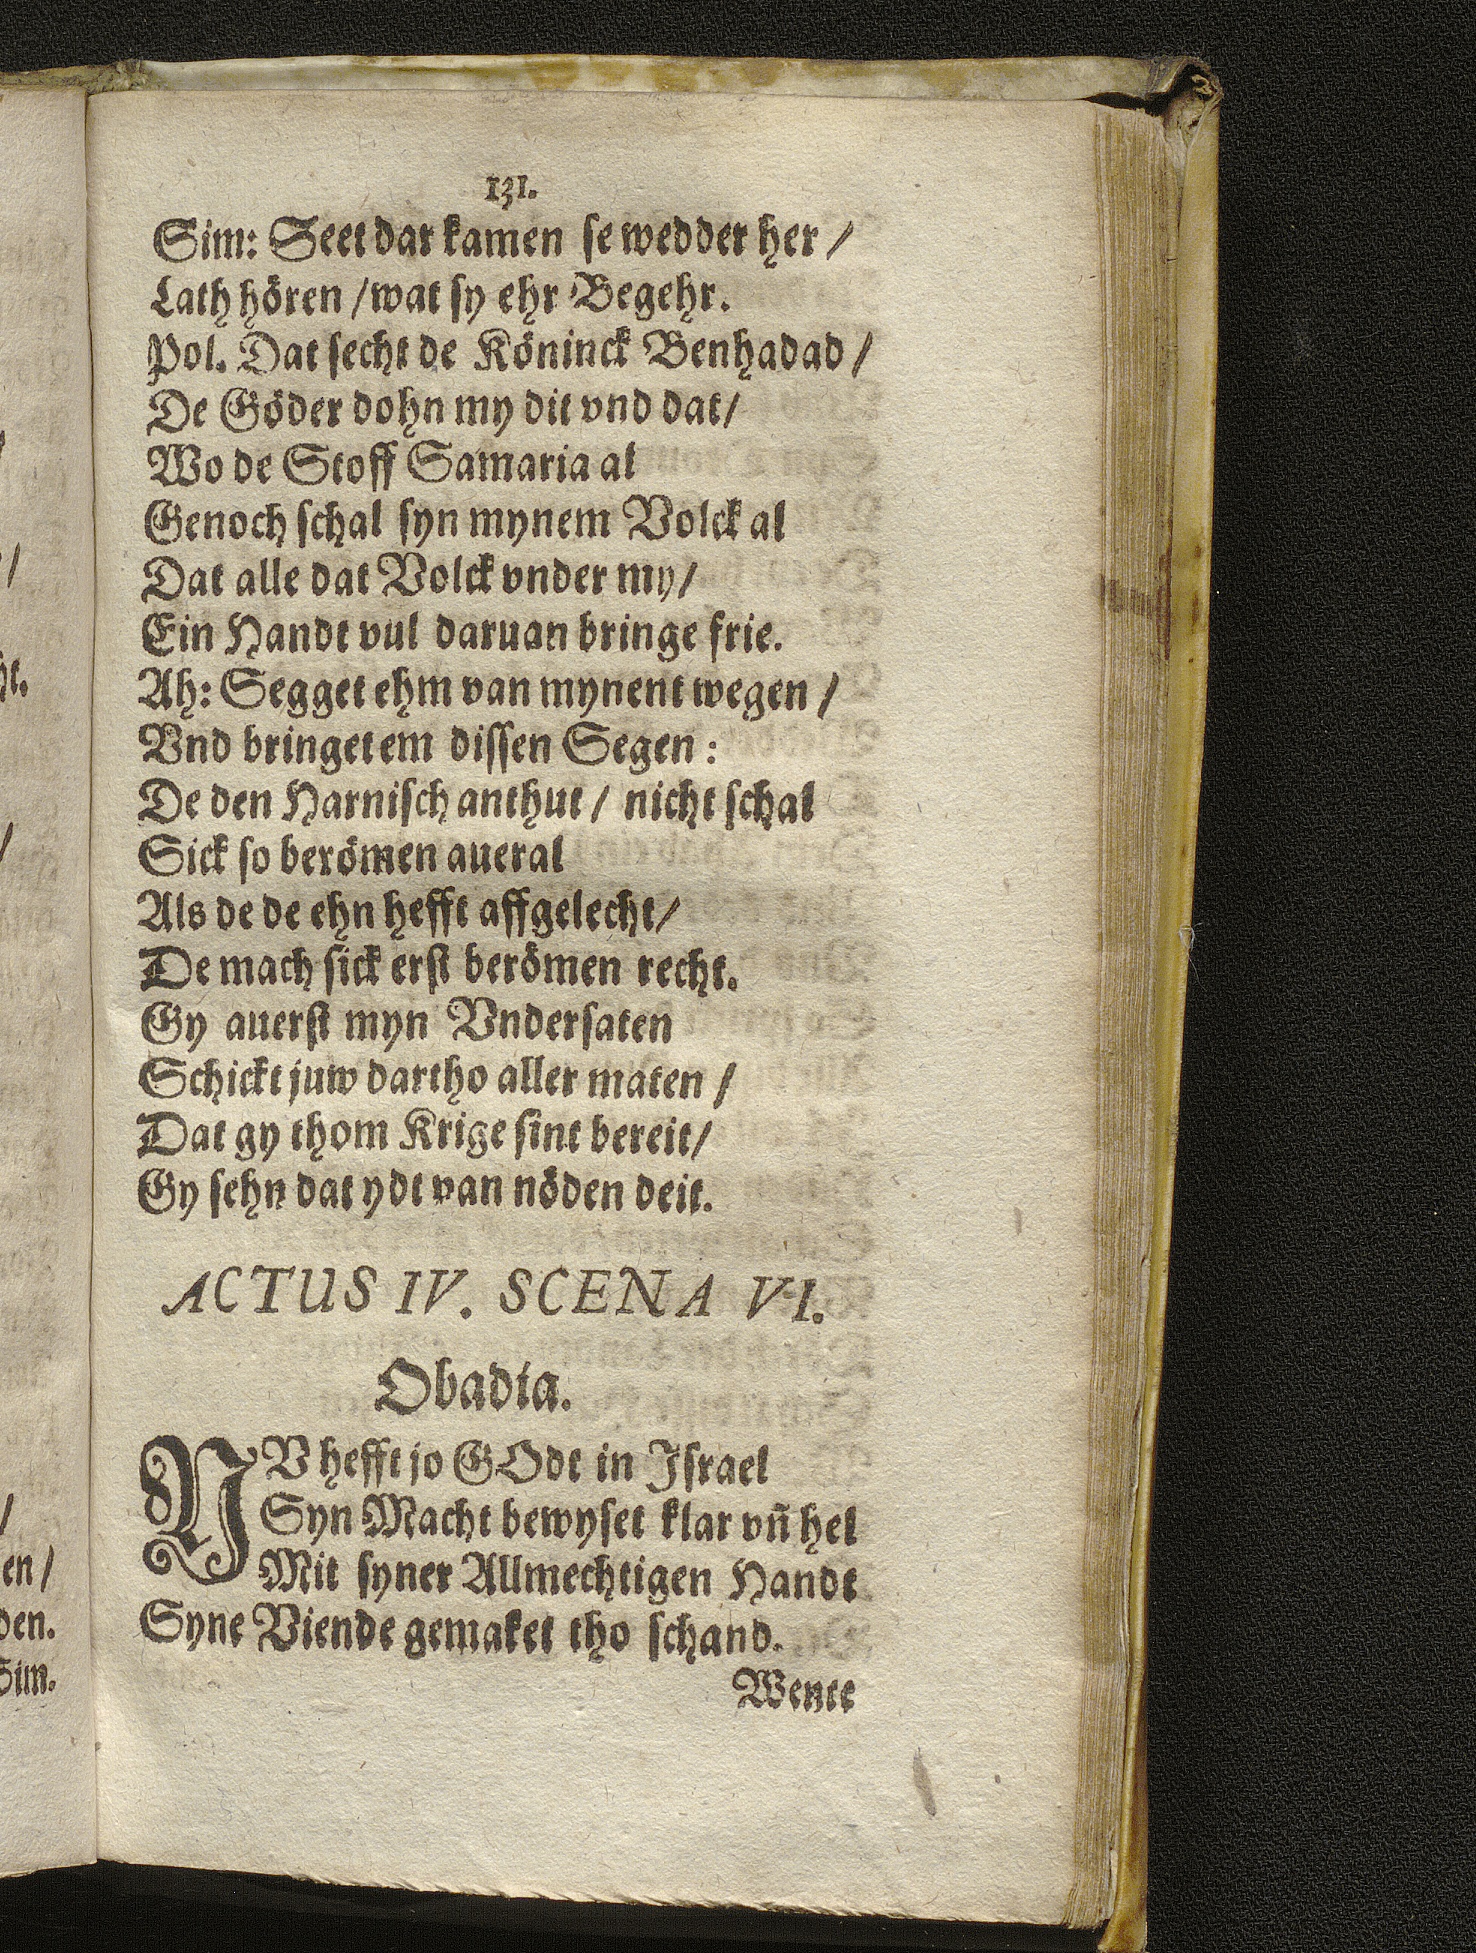 131.
Sim: Seet dar kamen se wedder her /
Lath hören / wat sy ehr Begehr.
Pol. Dat secht de Köninck Benhadad /
De Göder dohn my dit vnd dat /
Wo de Stoff Samaria al
Genoch schal syn mynem Volck al
Dat alle dat Volck vnder my /
Ein Handt vul daruan bringe frie.
Ah: Segget ehm van mynent wegen /
Vnd bringet em dissen Segen :
De den Harnisch anthut / nicht schal
Sick so berömen aueral
Als de de ehn hefft affgelecht /
De mach sick erst berömen recht.
Gy auerst myn Vndersaten
Schickt juw dartho aller maten /
Dat gy thom Krige sint bereit /
Gy sehn dat ydt van nöden deit.
ACTUS IV. SCENA VI.
Obadia.
NV hefft jo GOdt in Israel
Syn Macht bewyset klar vñ hel
Mit syner Allmechtigen Handt
Syne Viende gemaket tho schand.
Wente
ht.
en /
den.
Sim.